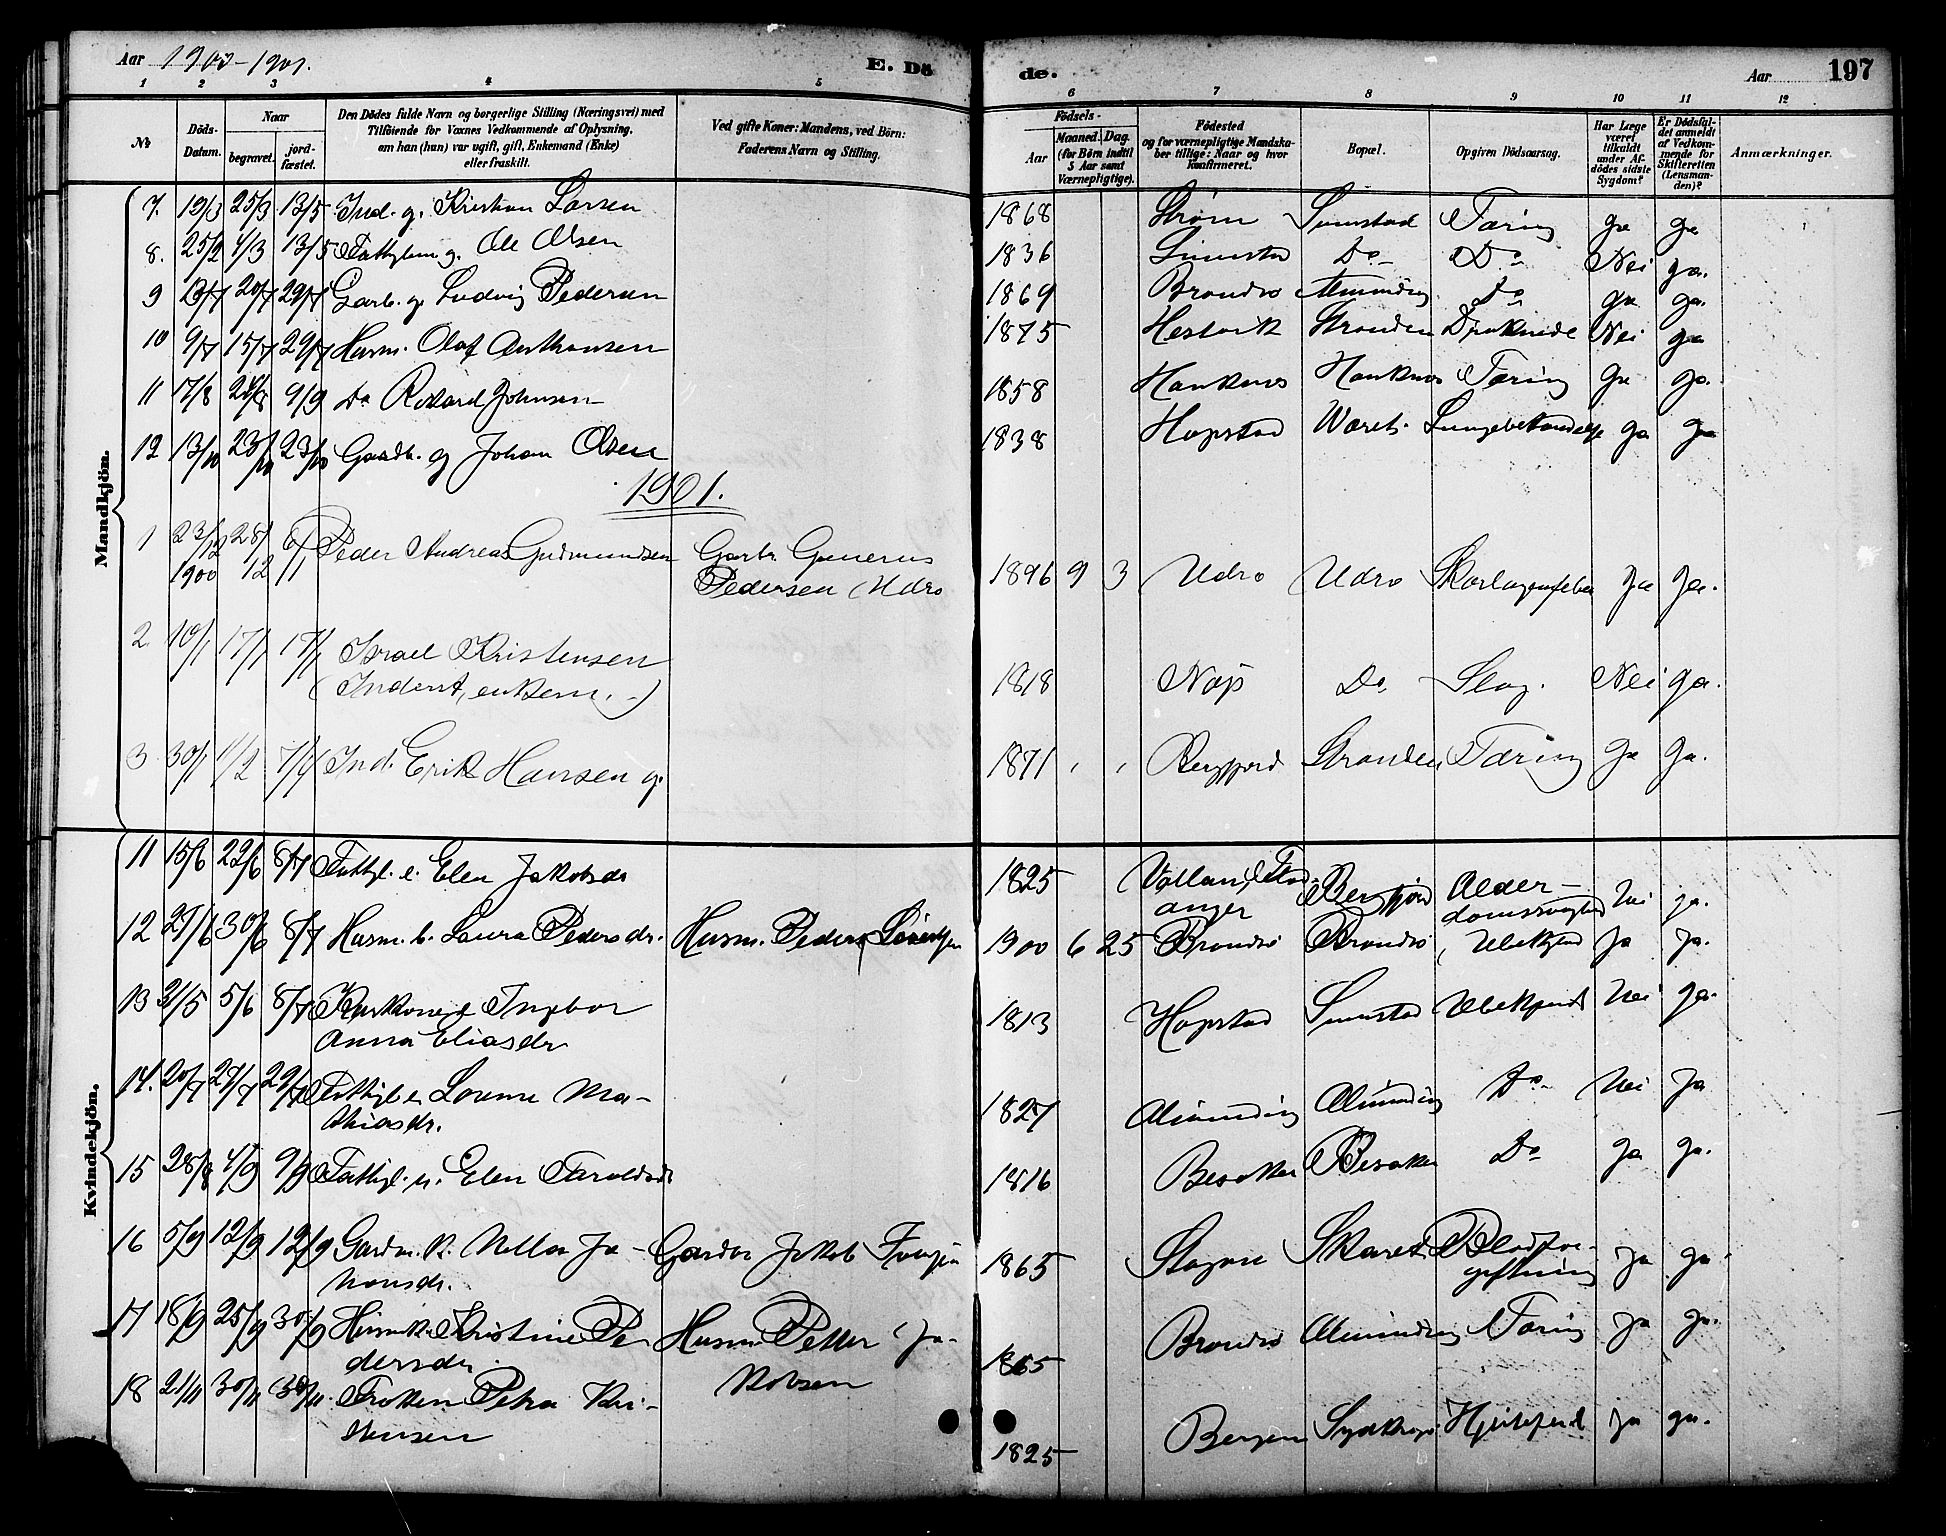 Aar 1900-1901.
E. Dö
de.
Aar
197
1 2 3 4 5 6 7 8 9 10 11 12
No
Döds-Datum.
Naar
begravet.
jord-fæstet.
Den Dödes fulde Navn og borgerlige Stilling (Næringsvei) med
Tilföiende for Voxnes Vedkommende af Oplysning,
om han (hun) var ugift, gift, Enkemand (Enke)
eller fraskilt.
Ved gifte Koner: Mandens, ved Börn:
Faderens Navn og Stilling.
Födsels-
Aar
Maaned. Dag.
(for Börn indtil
5 Aar samt
Værnepligtige).
Födested
og for værnepligtige Mandska-
ber tillige: Naar og hvor
konfirmeret.
Bopæl.
Opgiven Dödsaarsag.
Har Læge
været
tilkaldt
under Af-
dödes sidste
Sygdom?
Er Dödsfal-
det anmeldt
af Vedkom-
mende for
Skifteretten
(Lensman-
den)?
Anmærkninger.
Mandkjön.
7. 19/3 25/3 13/5 Ind. g. Kristian Larsen 1868 Strøm Sumstad Tæring ja ja
8. 25/2 4/3 13/5 g. Ole Olsen 1836 Sumstad Do Do Nei ja.
9 13/7 20/7 29/7 Garb. g. Ludvig Pedersen 1869 Brandsø Almending Do ja ja.
10 9/7 15/7 29/7 Husm. Olaf Anthonsen 1875 Hestvik Stranden Druknede Nei ja
11 17/8 9/9 Do Rikard Johnsen 1858 Hanknes Hanknes Tæring ja ja.
12 13/10 23/10 23/10 Gaardb. g Johan Olsen 1838 Hopstad Lungebetændelse ja ja
1901.
1 23/12 1900 28/12 6/1 Peder Andreas Gudmundsen Garbr. Gunerus
Pedersen Udrø 1896 9 3 Udrø Udrø Skarlagensfeber ja ja.
2. 10/1 17/1 17/1 Israel Kristensen
(Inderst, enkem.) 1818 Næss Do Slag. Nei ja.
3 30/1 7/4 Ind. Erik Hansen g. 1871 Bergfjord Stranden Tæring ja ja.
Kvindekjön.
11 15/6 22/6 8/7 e. Elen Jakobsdr 1825
anger Bergfjord Alder-
domssvaghed Nei ja.
12 27/6 30/6 8/7 Husm. b. Laura Pedersdr. Husm. Peder 1900 6 25 Brandsø Brandsø Ubekjend ja ja.
13 31/5 5/6 8/7 Ingbor
Anna Eliasdr 1813 Hopstad Sumstad Ubekjend Nei ja.
14. 20/7 27/7 29/7 e Lorense Ma-
thiasdr. 1827 Almending Almending Do Nei ja
15 28/8 4/9 9/9 Elen Taroldsdr 1816 Besaker Besaker Do ja ja.
16 5/9 12/9 12/9 Gardm. k. Ja-
Gardbr Jakob 1865 Skaret Blodfor-
giftning ja ja
17 18/9 25/9 30/9 Husm.k. Kristine Pe
dersdr. Husm. Petter Ja-
kobsen 1865 Brandsø Almending Tæring ja ja.
18 21/11 30/11 30/11 Frøken Petra Kri-
stensen 1825 Bergen Hjertefeil ja ja.